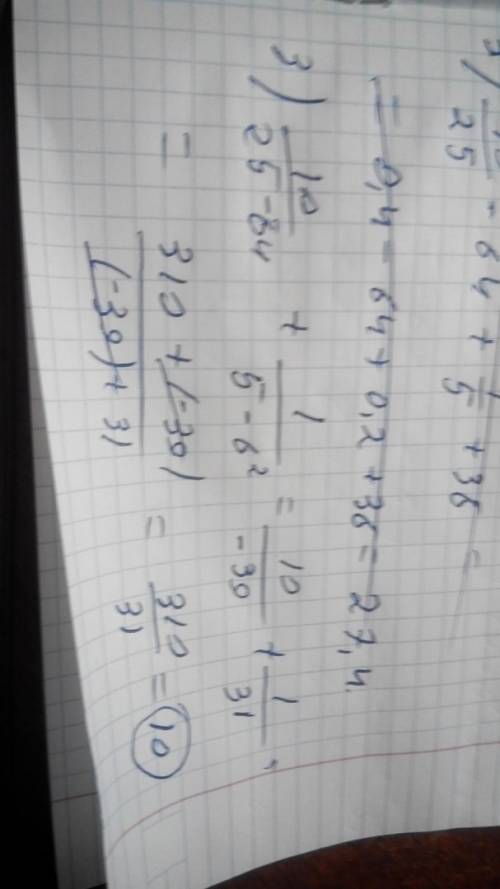 3) 10/25 - 64 + 1/5 + 36 =
= 0,4 - 64 + 0,2 + 36 = 27,4.
3) 10/(25 - 64) + 1/(5 - 6²) = 10/-39 + 1/31
= (310 + (-39))/((-39) + 31) = 310/31 = 10